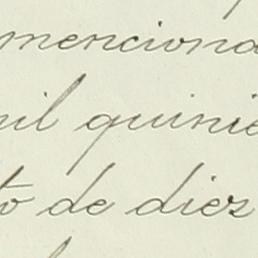 menciona
mil quinie
to de diez